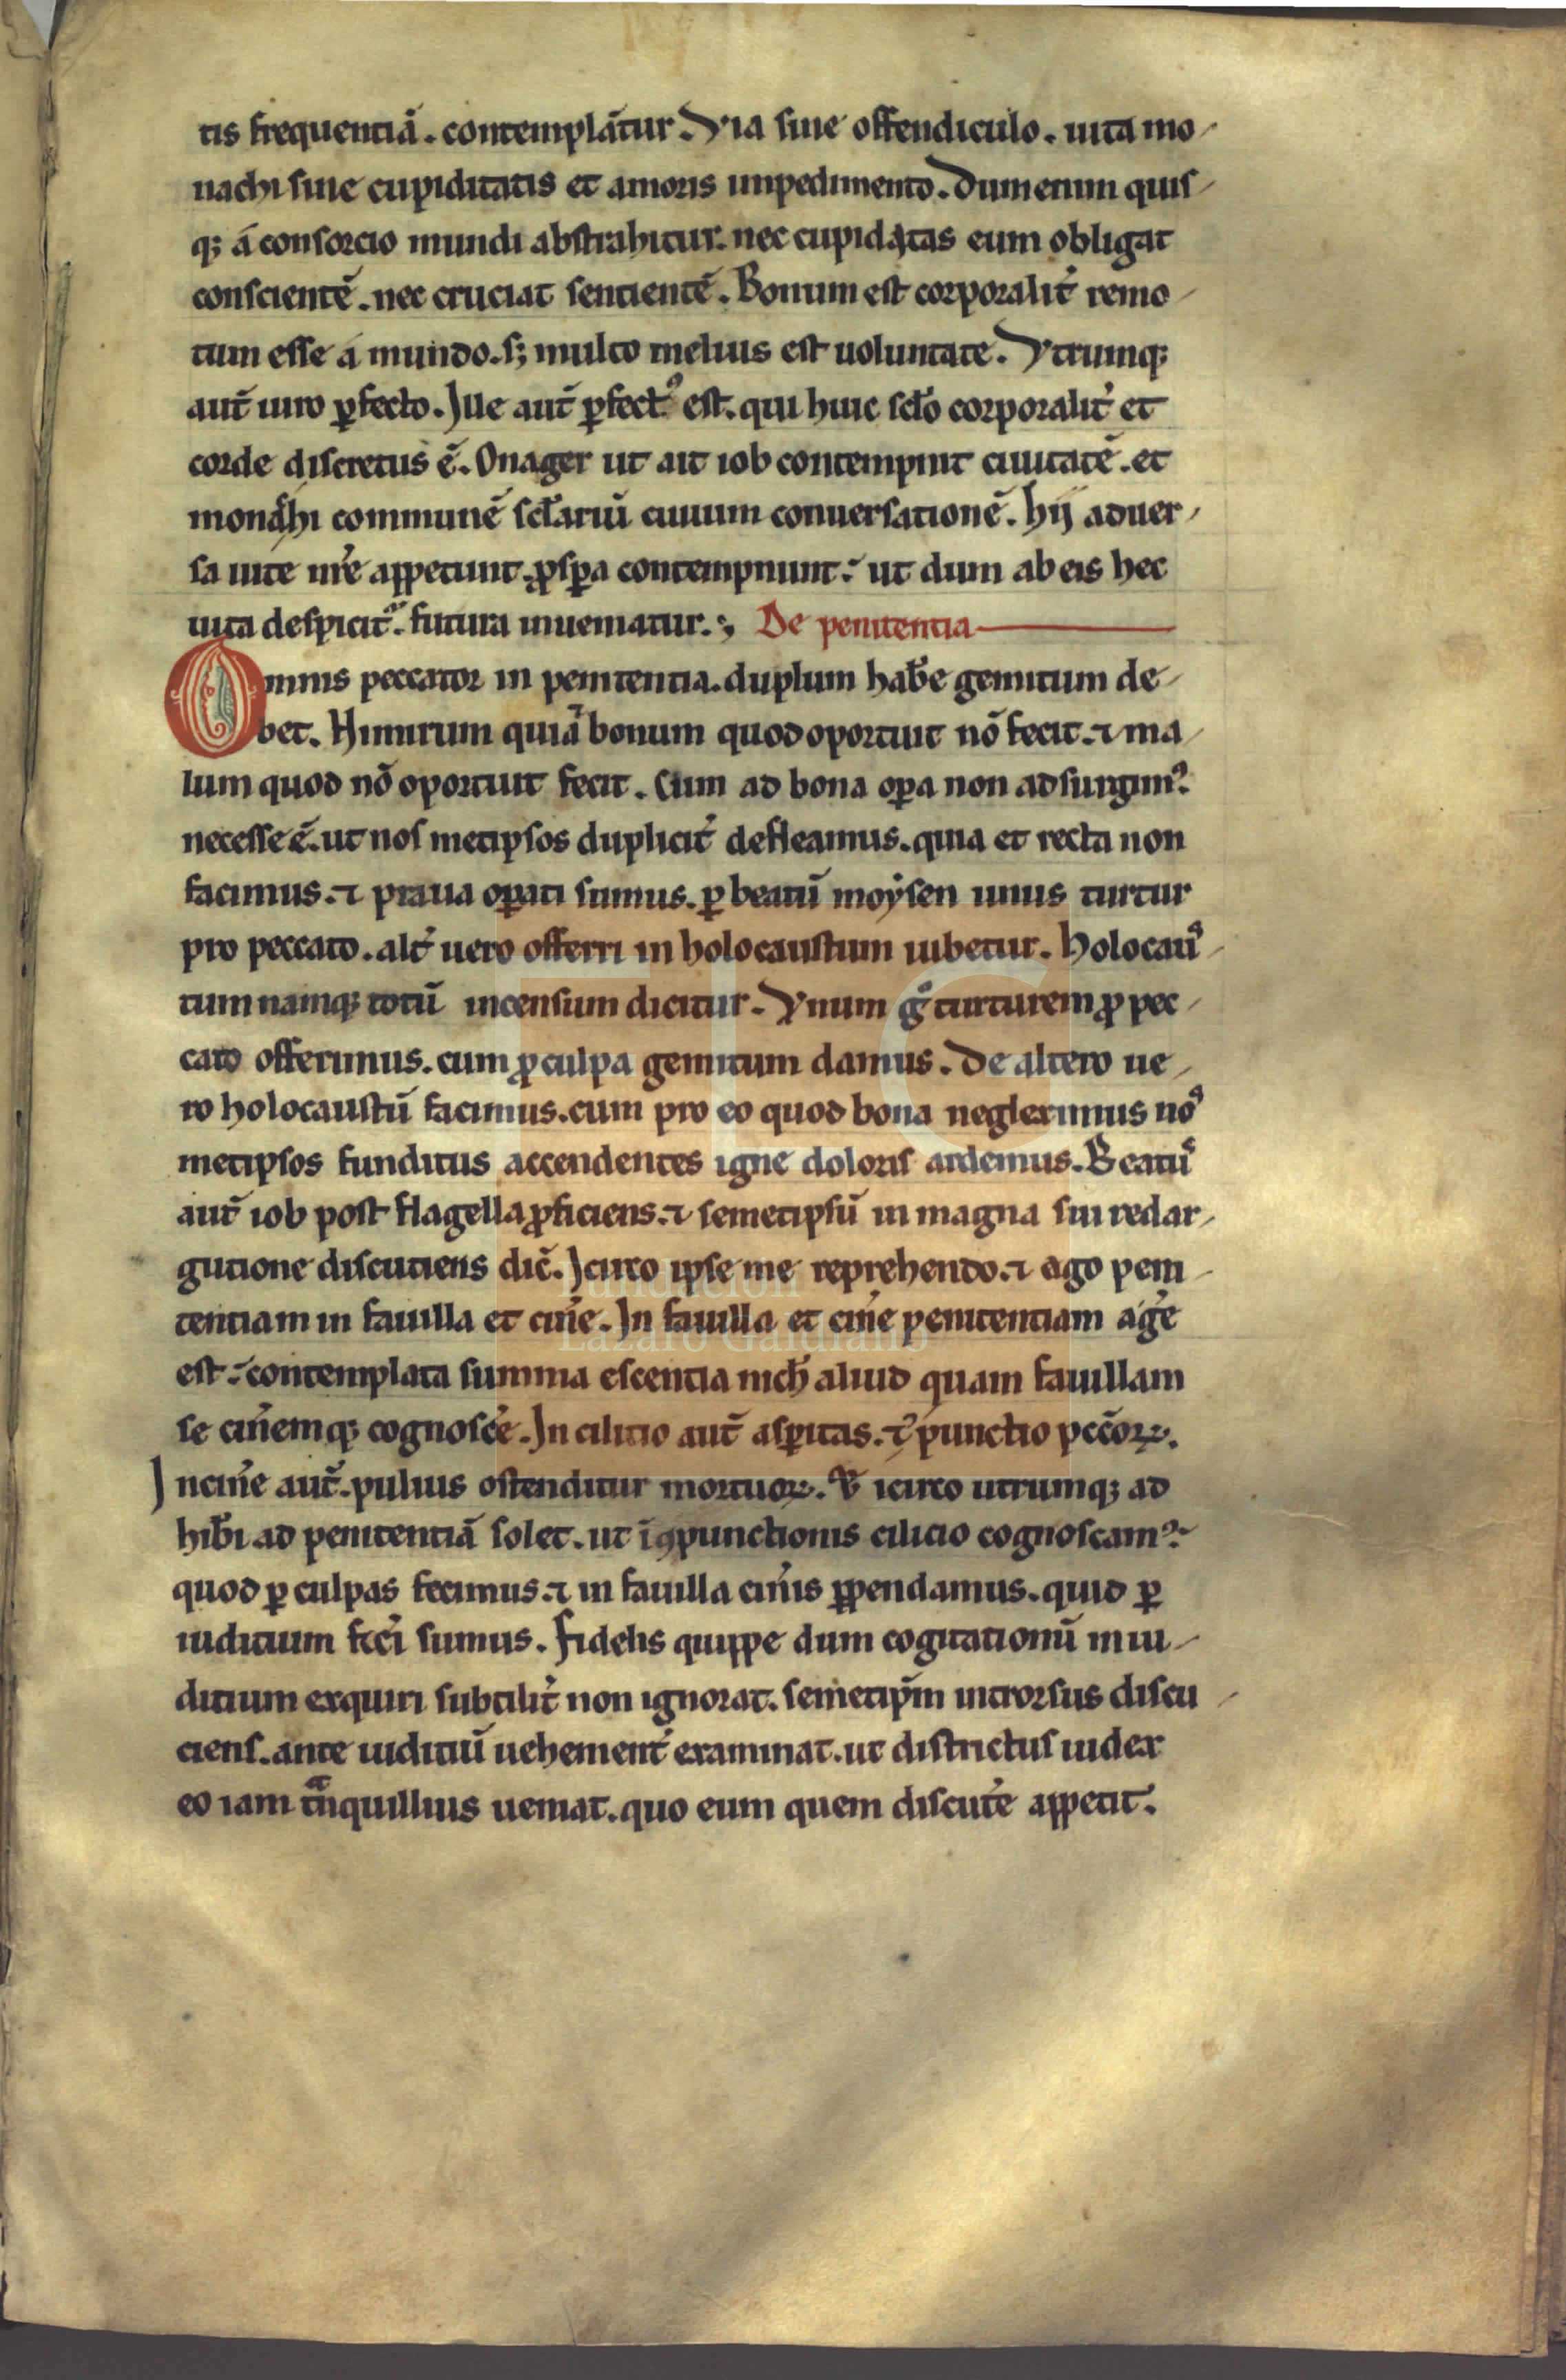 tis frequentiā. contemplātur. Via sine offendiculo. uita mo-
nachi sine cupiditatis et amoris inpedimento. Dum enim quis-
q; á consorcio mundi abstrahitur. nec cupiditas eum obligat
conscientē. nec cruciat sentientē. Bonum est corporalit̉ remo-
tum esse á mundo. s; multo melius est uoluntate. Vtrumq;
aut̄ uiro ꝑfecto. Ille aut̄ ꝑfectꝰ est. qui huic sc̄lo corporalit̉ et
corde discretus ē. Onager ut ait iob contempnit ciuitatē. et
monachi communē sc̄lariū ciuium conuersationē. hij aduer-
sa uite nr̄e appetunt. ꝓspꝑa contempnunt: ut dum ab eis hec
uita despicit᷑. futura inueniatur.; De penitentia
Omnis peccator in penitentia. duplum hab̉e gemitum de-
bet. Nimirum quia bonum quod oportuit nō fecit. ⁊ ma-
lum quod nō oportuit fecit. Cum ad bona oꝑa non adsurgimꝰ.
necesse ē. ut nos metipsos duplicit̉ defleamus. quia et recta non
facimus. ⁊ praua oꝑati sumus. ꝑ beatū moẏsen unus turtur
pro peccato. alt̉ uero offerri in holocaustum iubetur. Holocaus-
tum namq; totū incensum dicitur. Vnum g̊ turturem ꝓ pec-
cato offerimus. cum ꝓ culpa gemitum damus. De altero ue-
ro holocaustū facimus. cum pro eo quod bona negleximus nos
metipsos funditus accendentes igne doloris ardemus. Beatus
aut̄ iob post flagella ꝓficiens. ⁊ semetipsū in magna sui redar-
gutione discutiens dic̄. Icirco ipse me reprehendo. ⁊ ago peni-
tentiam in fauilla et cin̉e. In fauilla et cin̉e penitentiam ag̉e
est: contemplata summa escentia nich̄ aliud quam fauillam
se cin̉emq; cognosc̉e. In cilitio aut̄ asꝑitas. ⁊ ꝯpunctio pcc̄oꝝ.
In cin̉e aut̄. puluis ostenditur mortuoꝝ. Et icirco utrumq; ad
hib̉i ad penitentiā solet. ut ī ꝯpunctionis cilicio cognoscamꝰ.
quod ꝑ culpas fecimus. ⁊ in fauilla cin̉is ꝑpendamus. quid ꝑ
iuditium fc̄i sumus. Fidelis quippe dum cogitationū in iu-
ditium exquiri subtilit̉ non ignorat. semetip̄m introrsus discu-
ciens. ante iuditiū uehement̉ examinat. ut districtus iudex
eo iam tͣnquillius ueniat. quo eum quem discut̉e appetit.
Fundación
Lázaro Galdiano